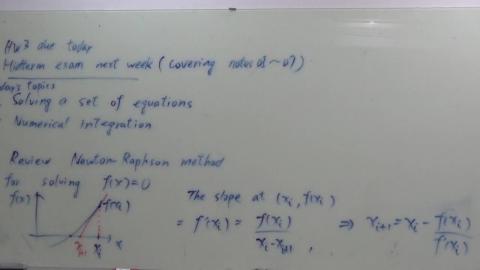 HW3 due today
Midterm exam next week (covering notes 01 ~ 07)
day's topics
Solving a set of equations
Numerical integration
Review Newton-Raphson method
for solving f(x)=0
f(x)
f(xi)
xi+1
xi
x
The slope at (xi, f(xi)
= f'(xi) = f(xi) / xi - xi+1 , ⇒ xi+1 = xi - f(xi) / f'(xi)